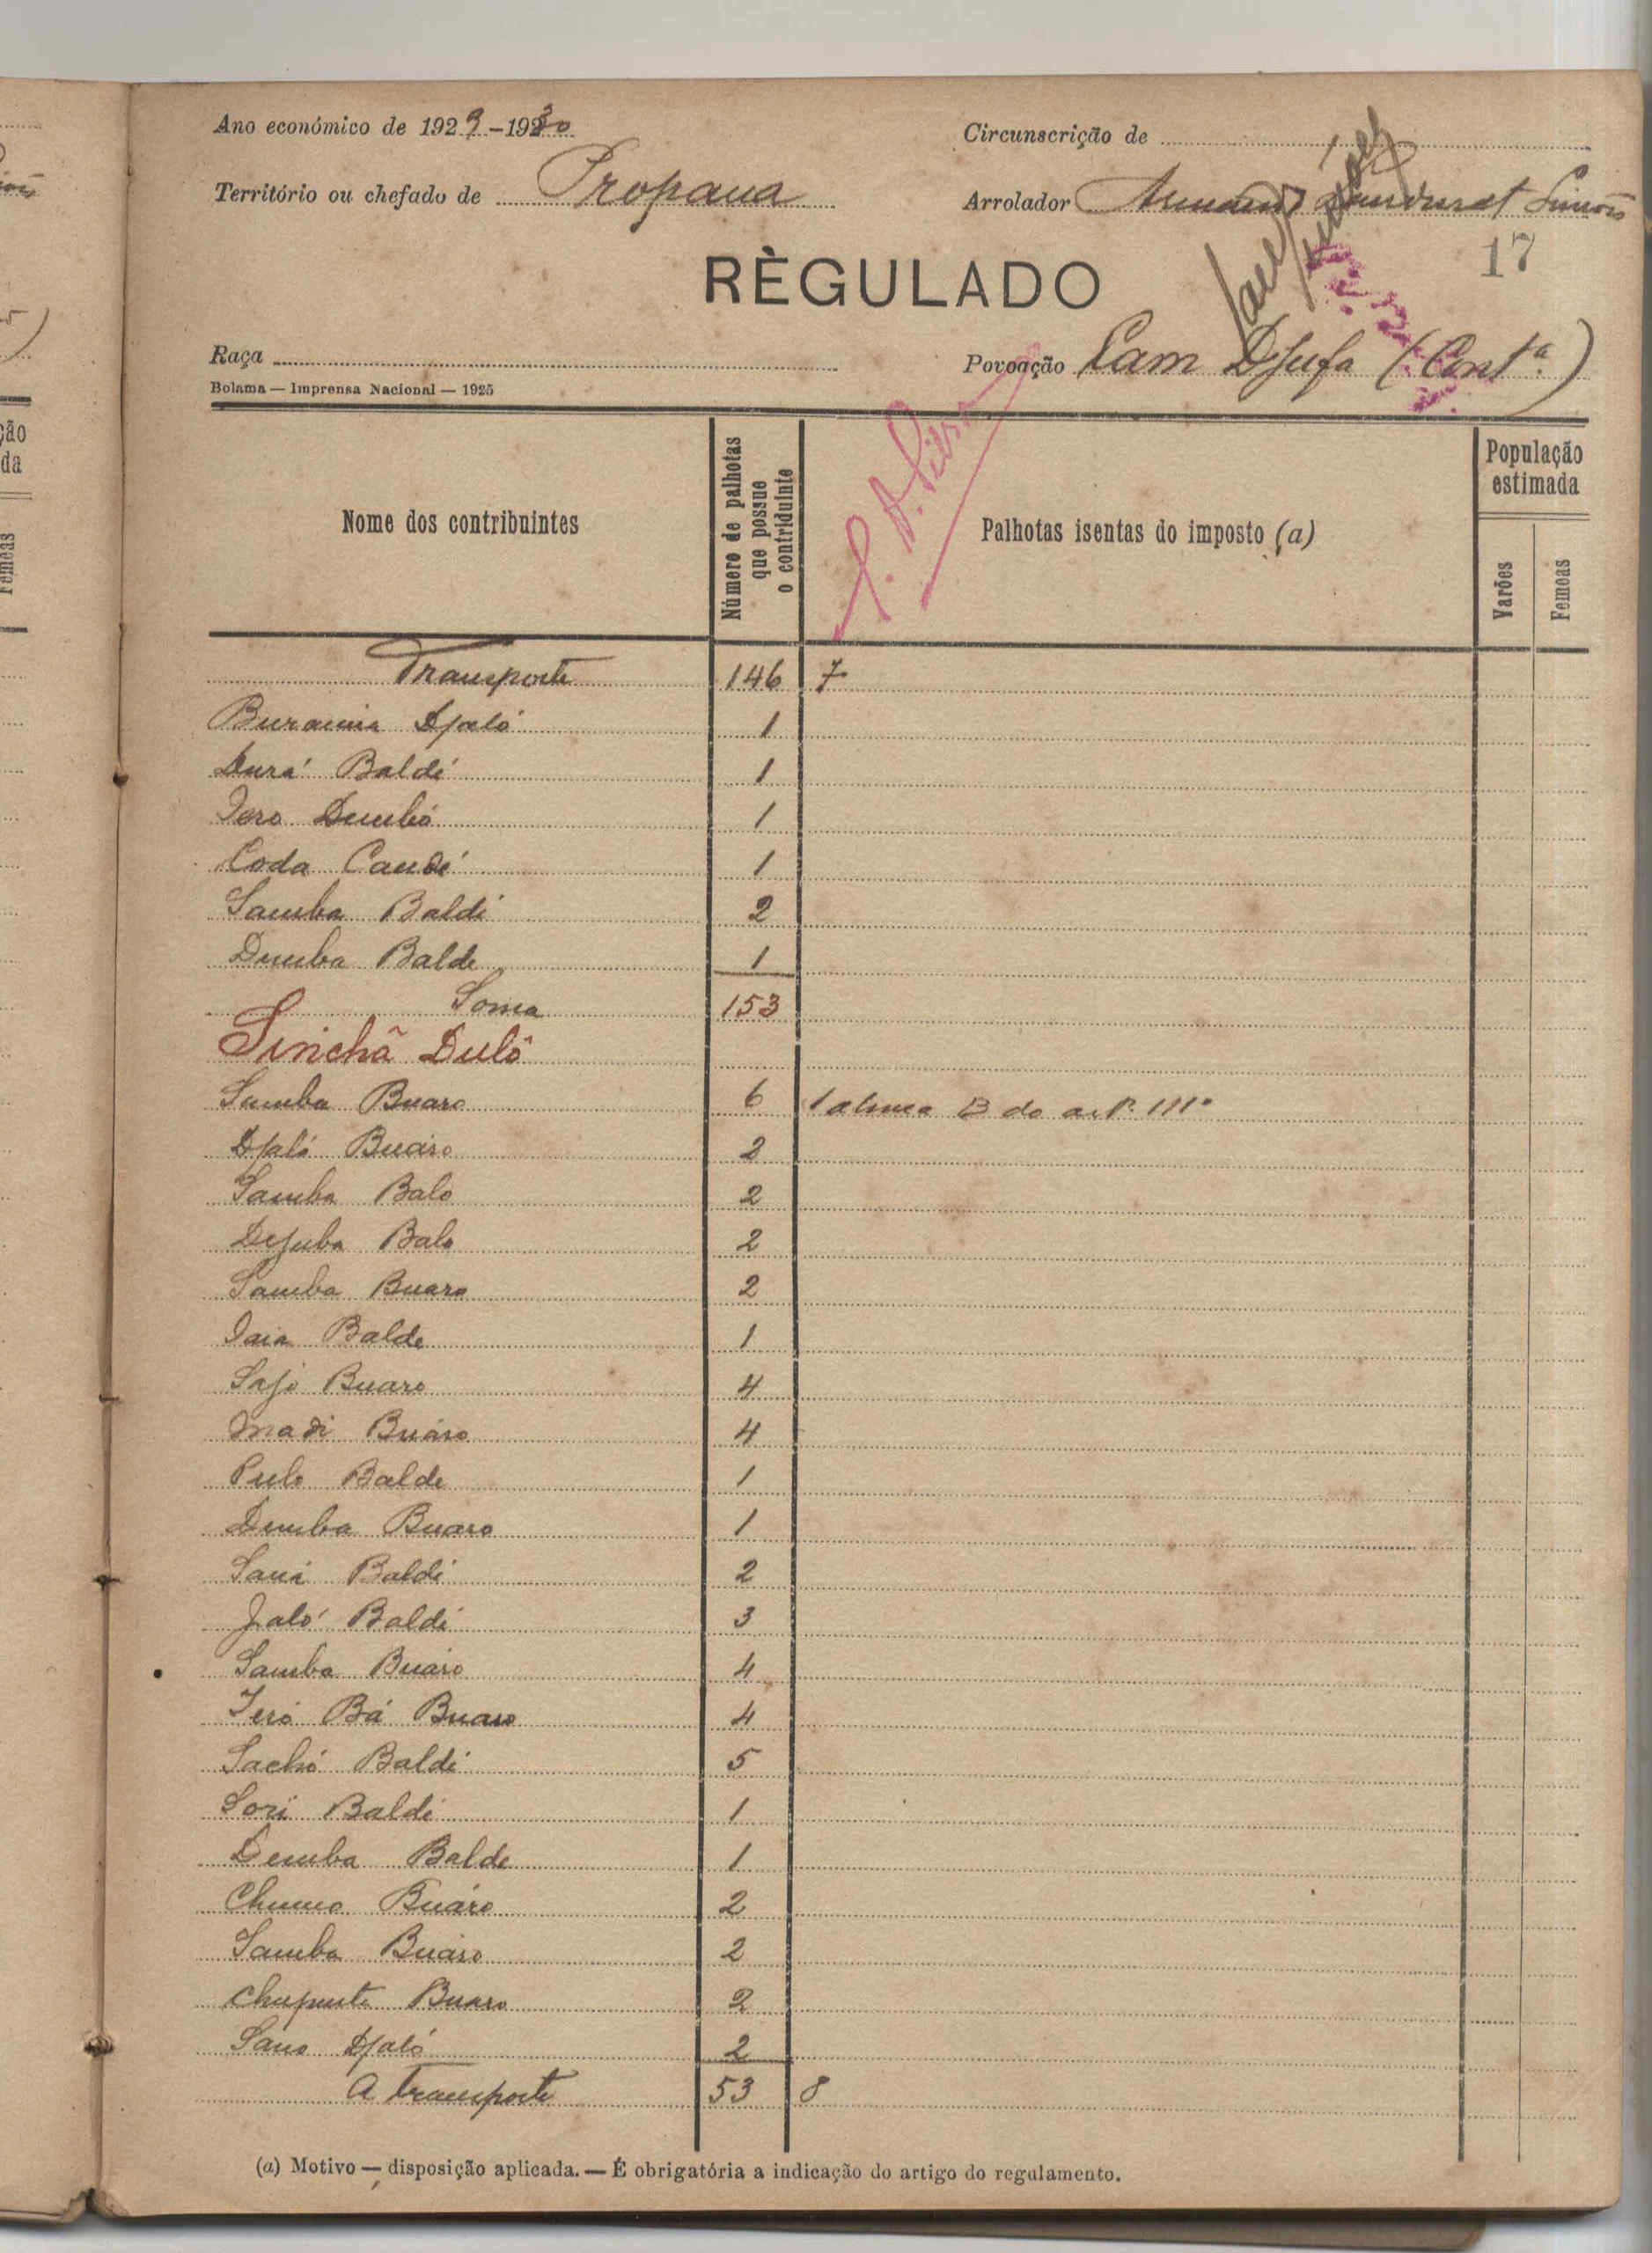 Ano económico de 1929-1930
Circunscrição de
Território ou chefado de Propana
Arrolador Armando Simões
17
RÈGULADO
Raça
Povoação Cam Djufa (Contª.)
Bolama — Imprensa Nacional — 1925
Nome dos contribuintes
Número de palhotas que possue o contriduinte
Palhotas isentas do imposto (a)
População estimada
Varões
Femeas
Transporte 146 7
Buraima Djaló 1
Durá Baldé 1
Iero Dembó 1
Coda Candé 1
Samba Baldé 2
Demba Balde 1
Soma 153
Sinchã Dulô
Samba Buaro 6 1 alinea B do artº 111º
Djaló Buáro 2
Samba Balo 2
Dejuba Balo 2
Samba Buaro 2
Iaia Balde 1
Sajo Buaro 4
Madi Buáro 4
Pulo Balde 1
Demba Buaro 1
Saná Baldé 2
Jaló Baldé 3
Samba Buáro 4
Ieró Bá Buaro 4
Sachó Baldé 5
Sori Baldé 1
Demba Balde 1
Chumo Buáro 2
Samba Buáro 2
Buaro 2
Sano Djaló 2
A transporte 53 8
(a) Motivo — disposição aplicada. — É obrigatória a indicação do artigo do regulamento.